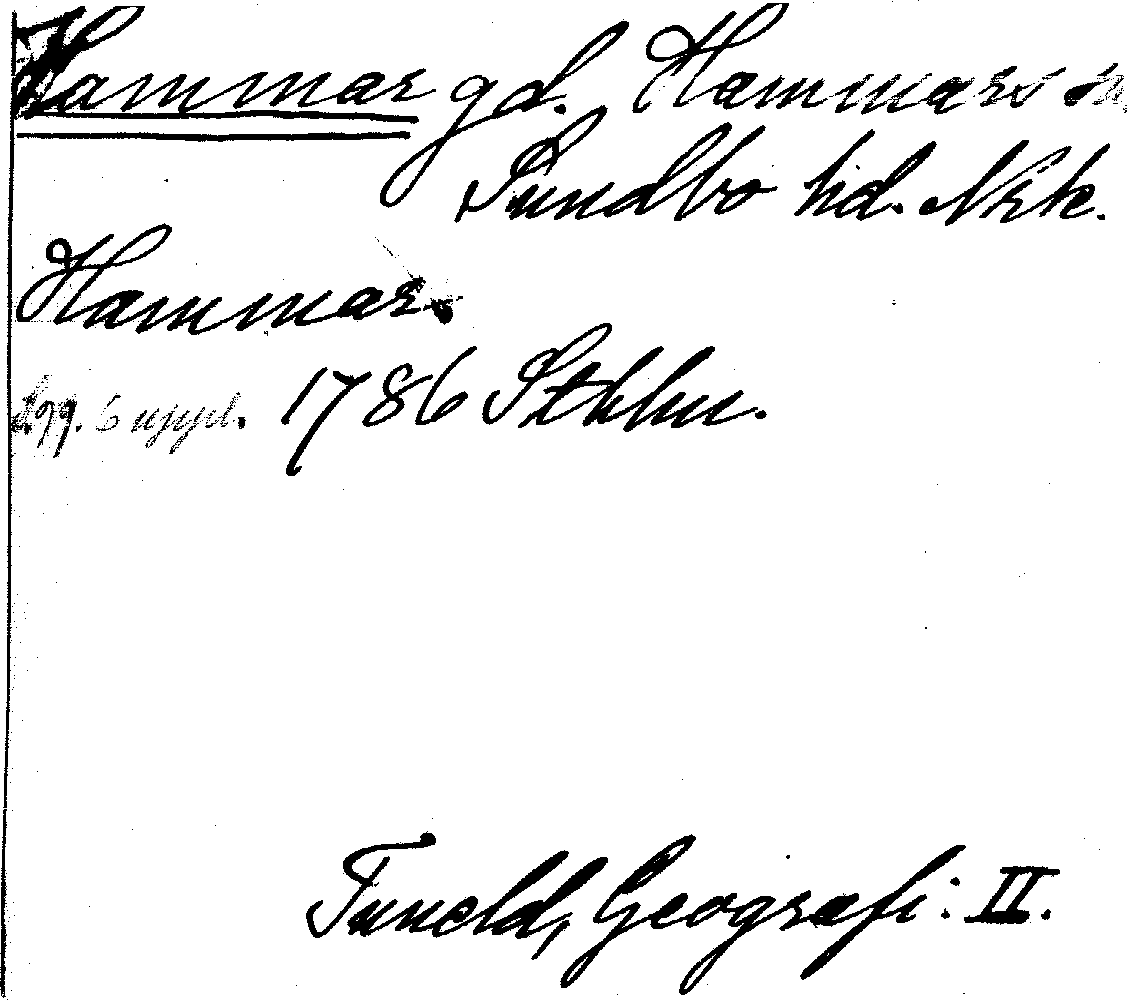 Hammar gd. Hammars sn,
Sundbo hd. Nrke.
Hammar.
6 uppl. 1786 Sthlm.
Tuneld, Geografi: II.